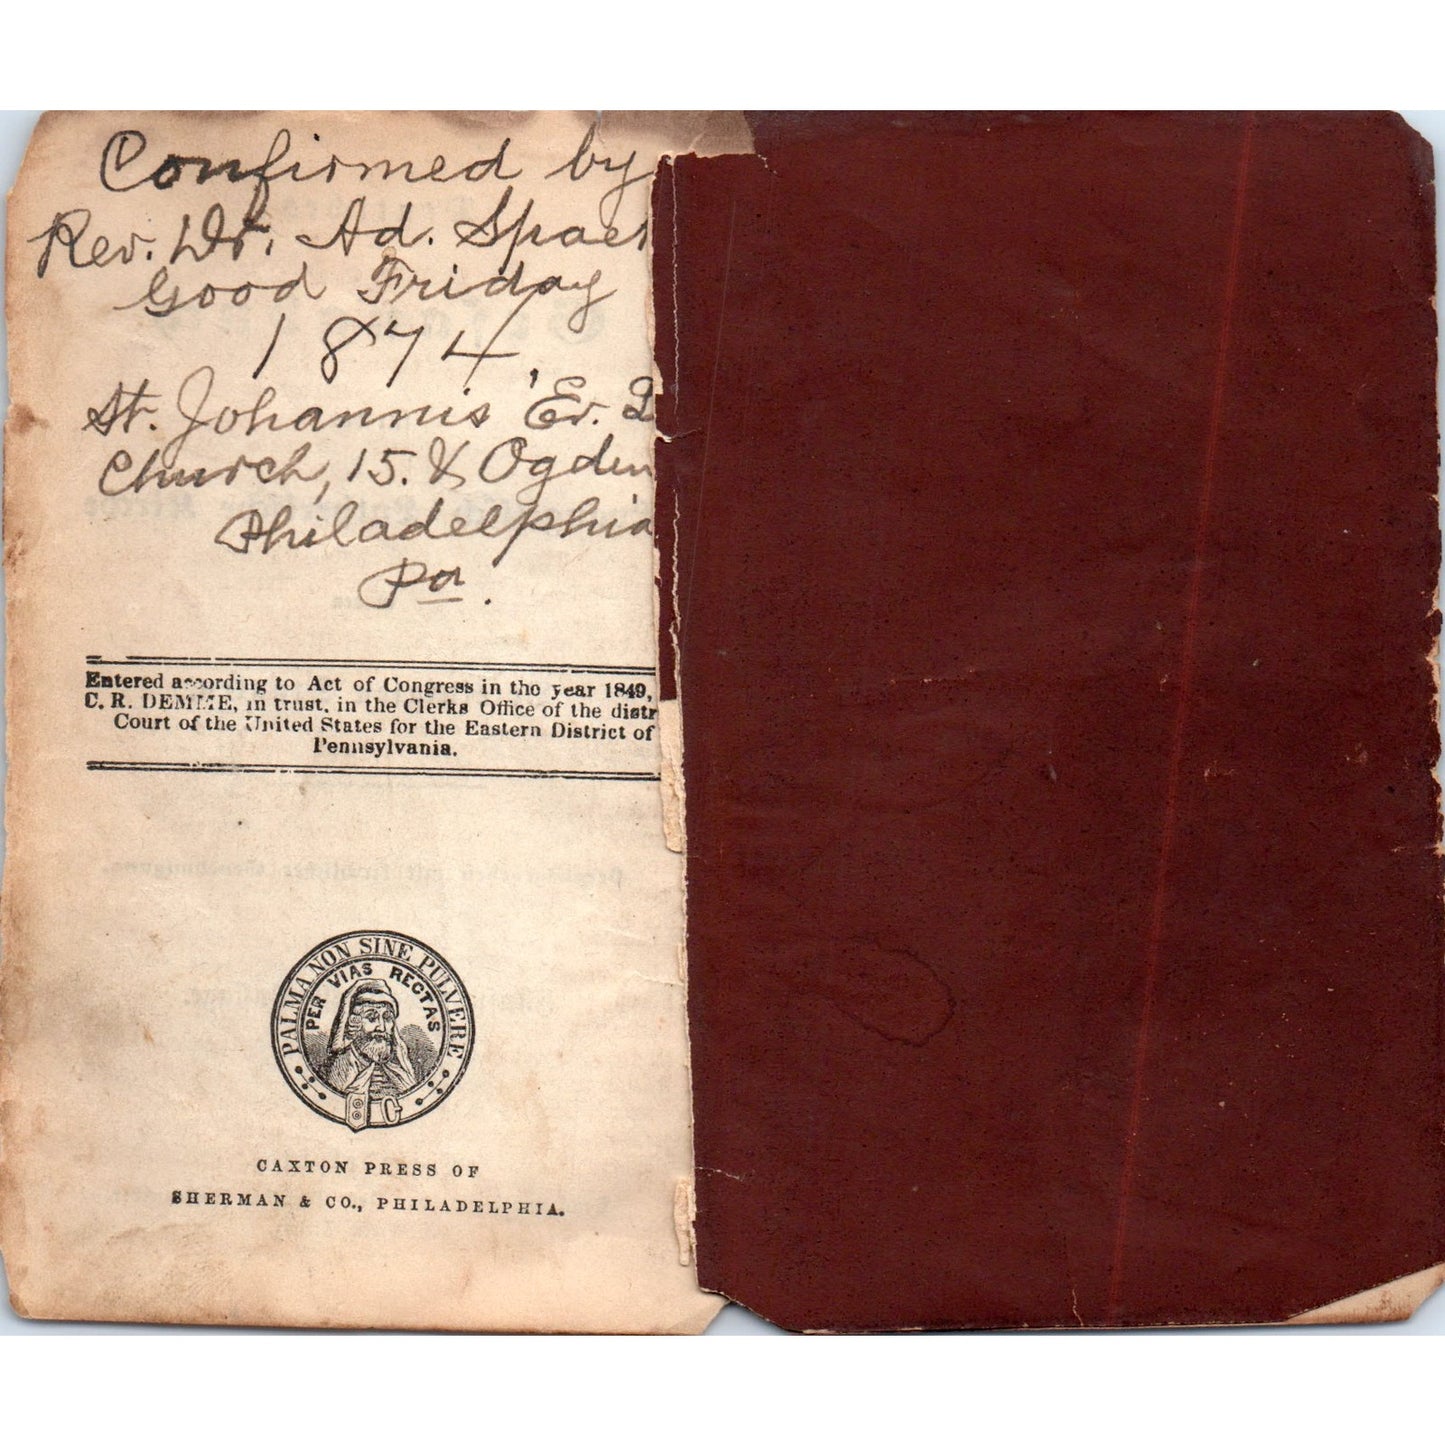 Confirmed by
Rev. Dr. Ad. Spaet
Good Friday
1874.
St. Johannis' Ev. L
Church, 15. & Ogden
Philadelphia
Pa.
Entered according to Act of Congress in the year 1849,
C. R. DEMME, in trust, in the Clerks Office of the distr
Court of the United States for the Eastern District of
Pennsylvania.
PALMA NON SINE PULVERE
PER VIAS RECTAS
CAXTON PRESS OF
SHERMAN & CO., PHILADELPHIA.